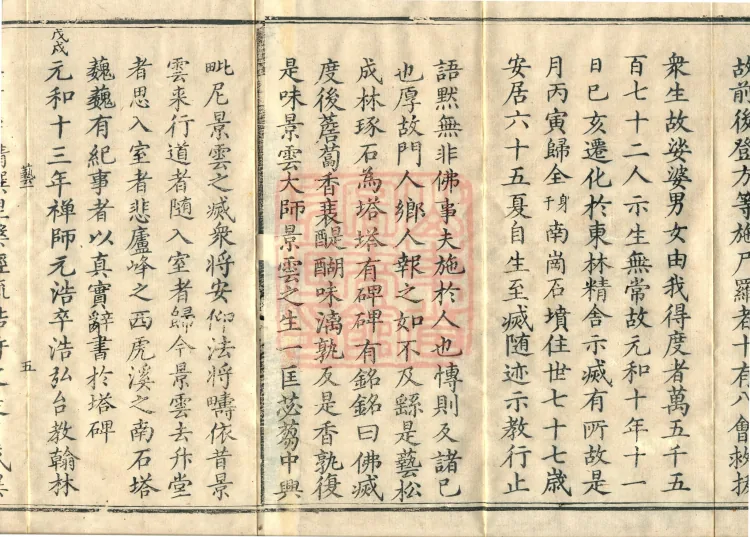 故前後登方等施尸羅者十有八會救拔
衆生故娑婆男女由我得度者萬五千五
百七十二人示生無常故元和十年十一
日巳亥遷化於東林精舍示滅有所故是
月丙寅歸全身于南崗石墳住世七十七歲
安居六十五夏自生至滅随迹示教行止
語默無非佛事夫施於人也愽則及諸已
也厚故門人鄉人報之如不及繇是藝松
成林琢石為塔塔有碑碑有銘銘曰佛滅
度後薝蔔香裛醍醐味漓孰反是香孰復
是味景雲大師景雲之生一匡苾蒭中興
毗尼景雲之滅衆將安仰法將疇依昔景
雲来行道者随入室者歸今景雲去升堂
者思入室者悲廬峰之西虎溪之南石塔
巍巍有紀事者以真實辭書於塔碑
戊戌元和十三年禅師元浩卒浩弘台教翰林
藝 五